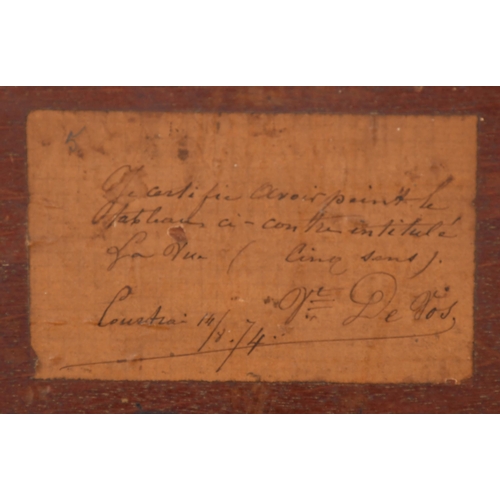 Je certifie avoir peint le
tableau ci-contre intitulé
La Vue ( Cinq sens ).
Vt De Vos,
Courtrai 14/8.74.